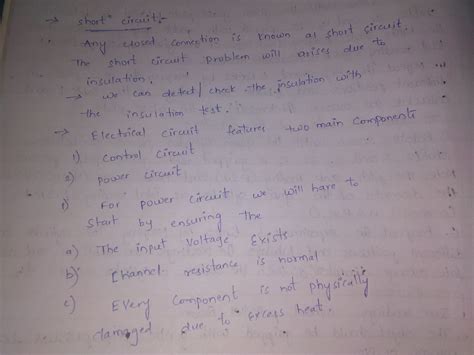 → short circuit:
Any closed connection is known as short circuit.
The short circuit problem will arises due to
insulation.
→ we can detect/check the insulation with
the insulation test.
→ Electrical circuit features two main components
1) control circuit
2) power circuit
1) For power circuit we will have to
start by ensuring the
a) The input voltage exists
b) channel resistance is normal
c) Every component is not physically
damaged due to excess heat.